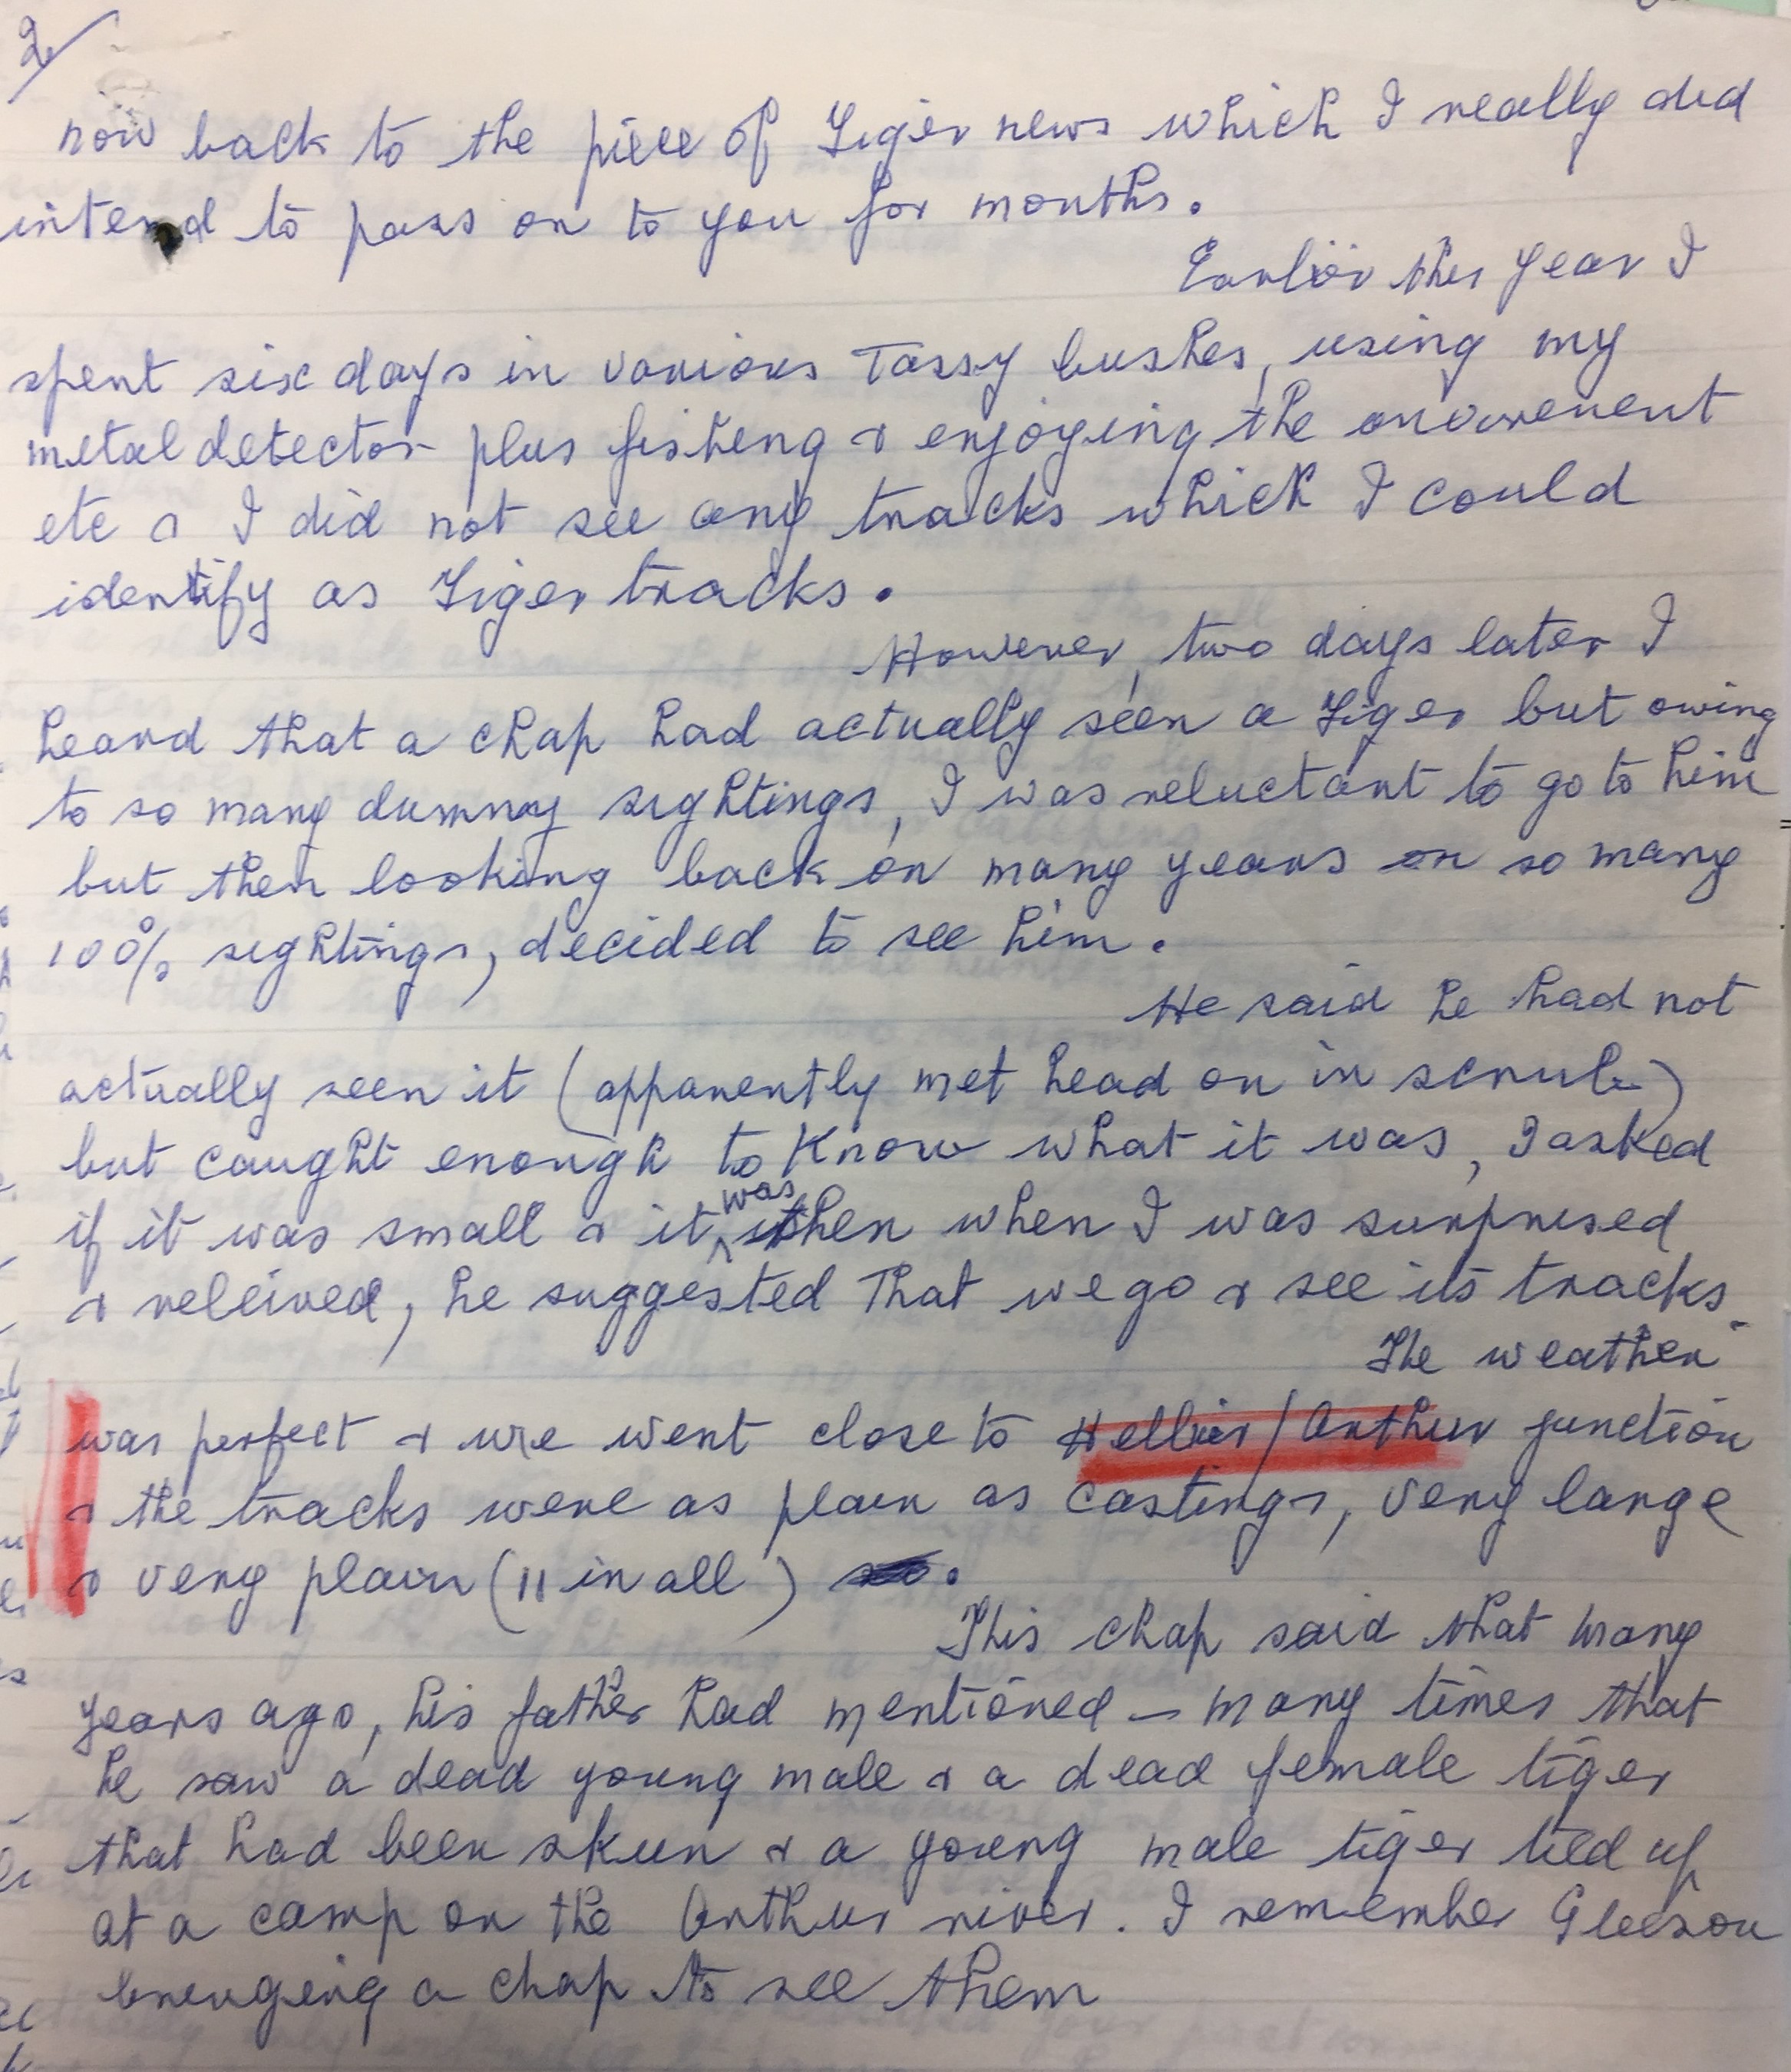 2/
now back to the piece of Tiger news which I really did
intend to pass on to you for months.
Earlier this year I
spent six days in various Tassy bushes, using my
metal detector plus fisheng & enjoying the
etc & I did not see any tracks which I could
identify as Tiger tracks.
However, two days later I
heard that a chap had actually seen a Tiger but owing
to so many dummy sightings, I was reluctant to go to him
but then looking back on many years on so many
100% sightings, decided to see him.
He said he had not
actually seen it (apparently met head on in scrub)
but caught enough to know what it was, I asked
if it was small & it was then when I was surprised
& releived, he suggested that we go & see its tracks.
The weather
was perfect & we went close to Hellier/Arthur junction
& the tracks were as plain as castings, very large
& very plain (11 in all).
This chap said that many
years ago, his father had mentioned – many times that
he saw a dead young male & a dead female tiger
that had been skun & a young male tiger tied up
at a camp on the Arthur river. I remember Gleeson
a chap to see them